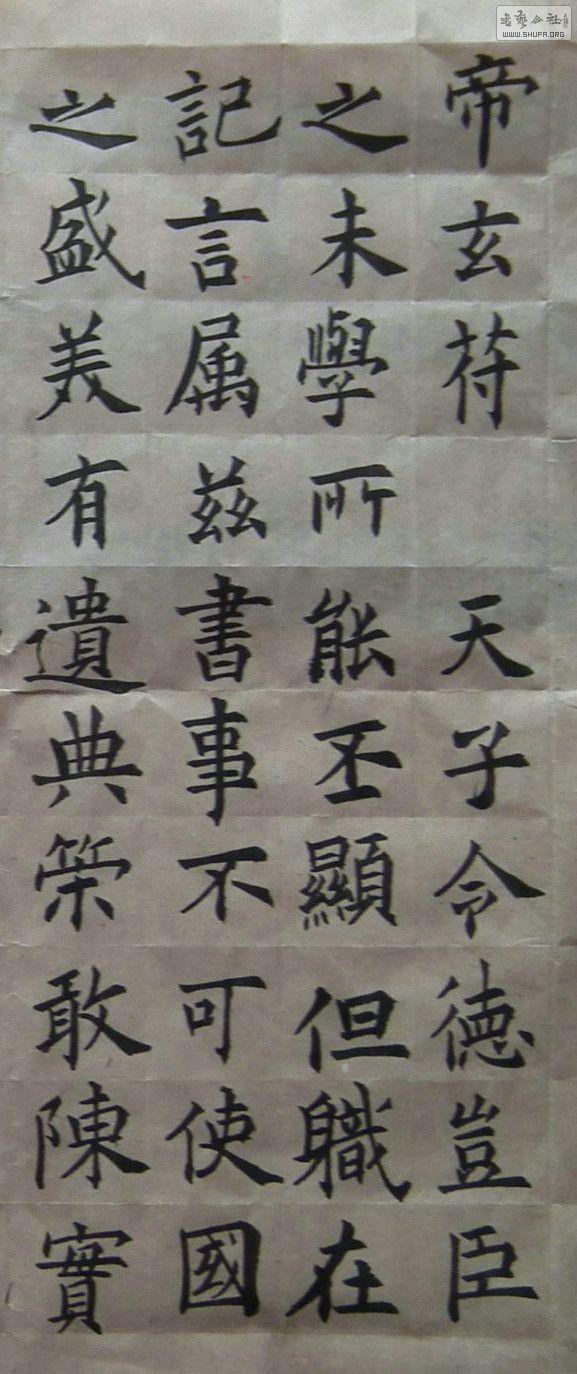 帝玄符 天子令德豈臣
之未學所能丕顯但職在
記言属茲書事不可使國
之盛美有遺典策敢陳實
WWW.SHUFA.ORG